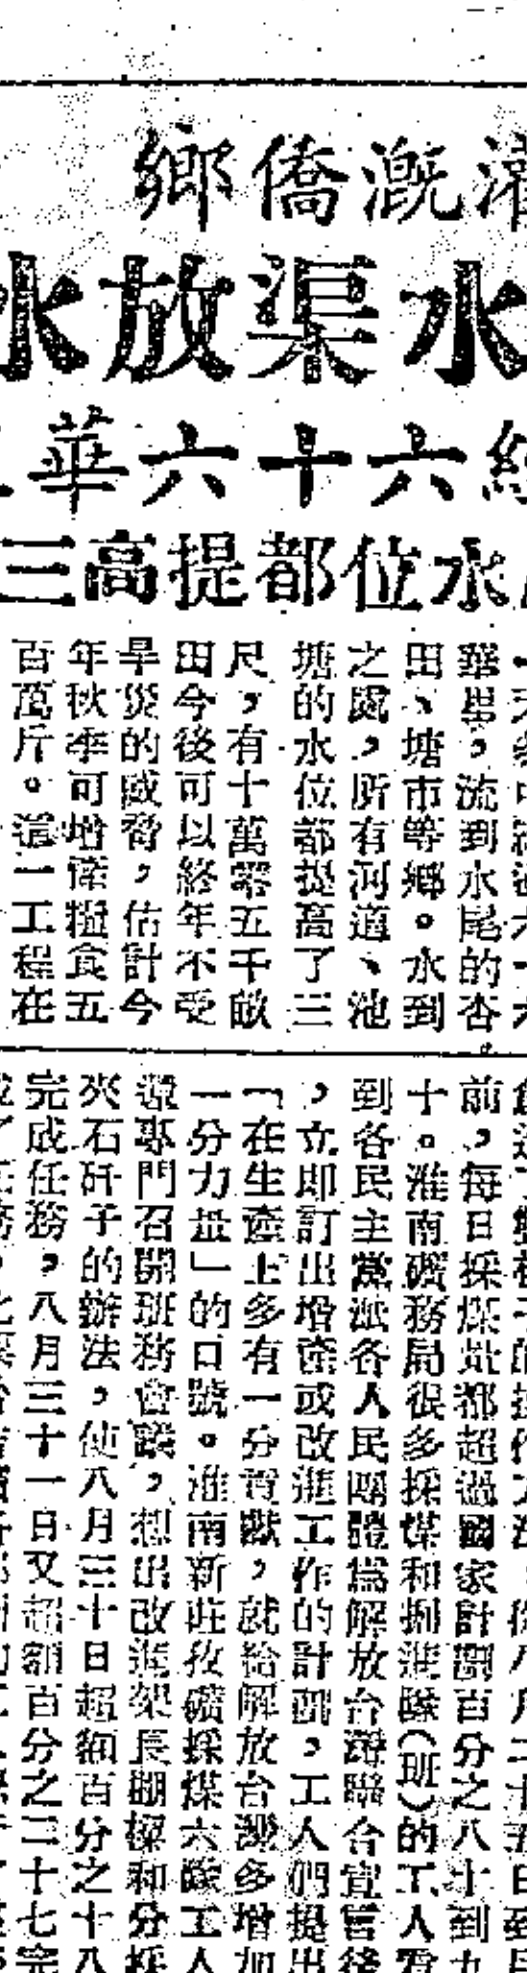 灌溉僑鄉
水渠放水
六十六華
水位都提高三
華里，流到水尾的杏
田、塘市等鄉。水到
之處，所有河道、池
塘的水位都提高了三
尺，有十萬零五千畝
田今後可以終年不受
旱災的威脅，估計今
年秋季可增產糧食五
百萬斤。這一工程在
前，每日採煤量都超過國家計劃百分之八十到九
十。淮南礦務局很多採煤和掘進隊（班）的工人看
到各民主黨派各人民團體為解放台灣聯合宣言後
，立即訂出增產或改進工作的計劃，工人們提出
「在生產上多有一分貢獻，就給解放台灣多增加
一分力量」的口號。淮南新莊孜礦採煤六隊工人
還專門召開班務會議，想出改進架長棚樑和分採
夾石矸子的辦法，使八月三十日超額百分之十八
完成任務，八月三十一日又超額百分之二十七完